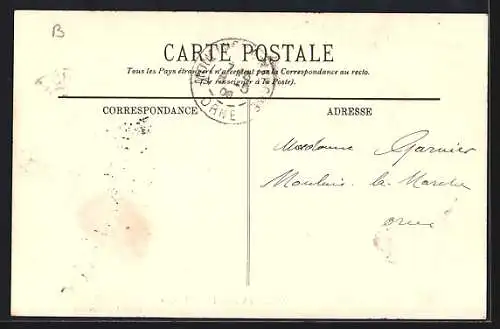 B
CARTE POSTALE
Tous les Pays étrangers n'acceptent pas la Correspondance au recto.
(Se renseigner à la Poste).
ORNE
CORRESPONDANCE
ADRESSE
Madame Garnier
Moulins-la-Marche
Orne